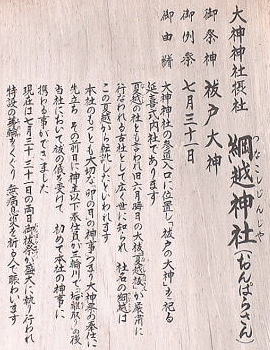 大神神社摂社
綱越神社(おんぱらさん)
つなこしじんじゃ
御祭神 祓戸大神
御例祭 七月三十一日
御由緒
大神神社の参道入口に位置し「祓戸の大神」を祀る
延喜式内社であります
夏越の社とも言われ旧六月晦日の大祓(夏越祓)が厳粛に
行なわれる古社として広く世に知られ 社名の綱越は
この夏越から転訛したといわれます
本社のもっとも大切な卯の日の神事つまり大神祭の奉仕に
先立ち その前日に神主以下奉仕員が三輪川で の後
当社において祓の儀を受けて 初めて本社の神事に
携わる事ができました
現在は七月三十・三十一日の両日御祓祭が盛大に執り行われ
特設の茅輪をくぐり 無病息災を祈る人で賑わいます